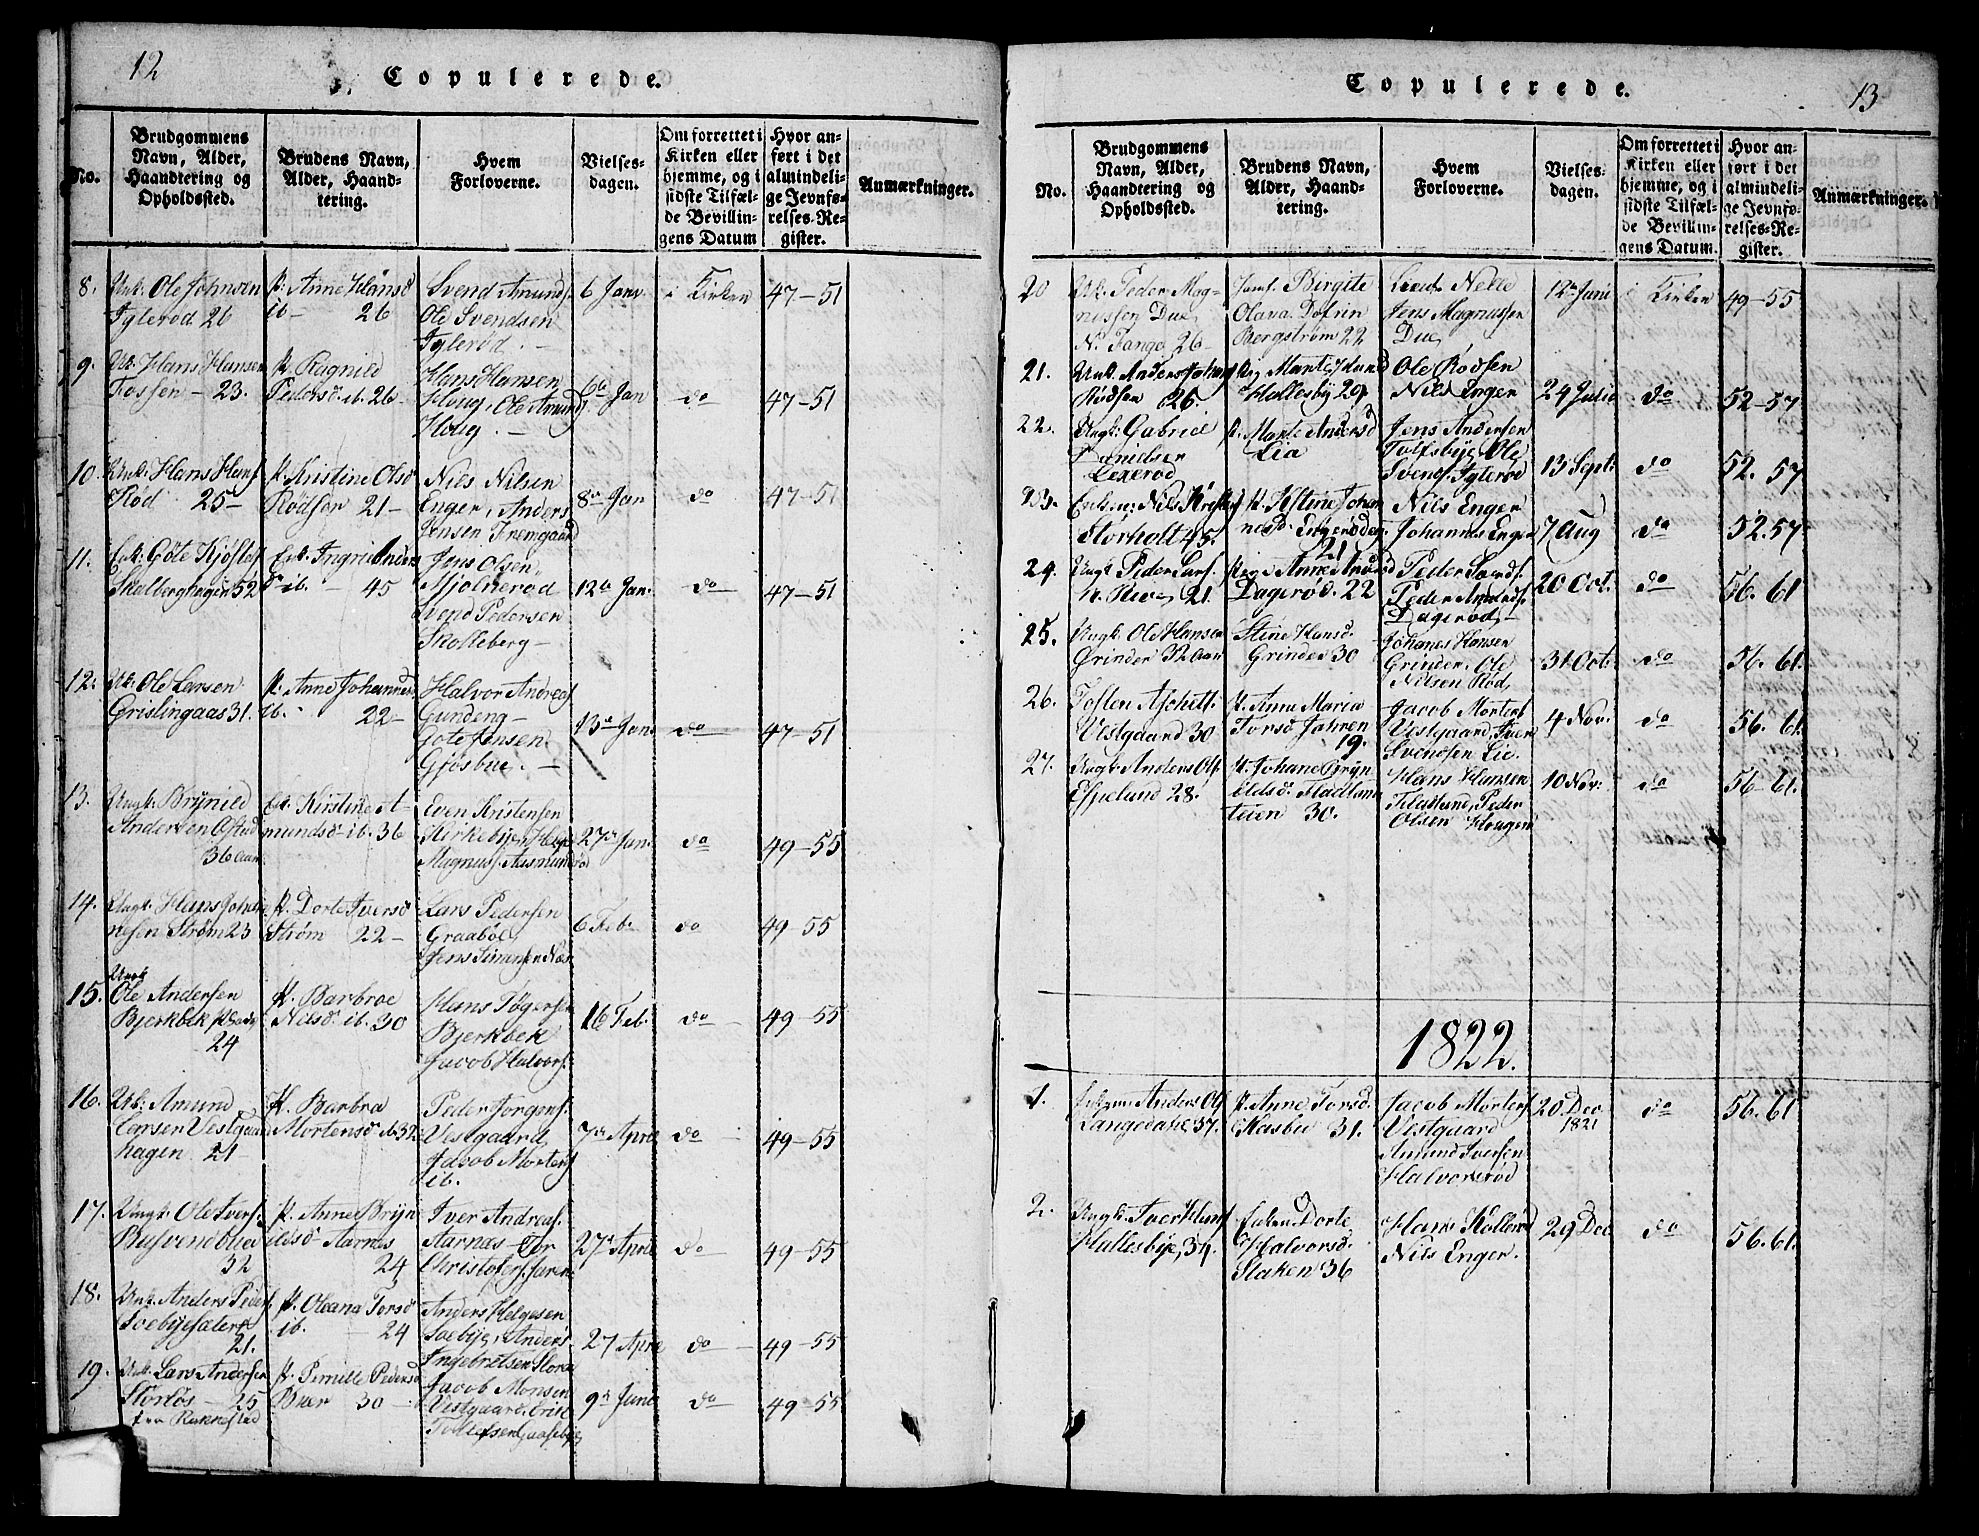 12
Copulerede.
No.
Brudgommens
Navn, Alder,
Haandtering og
Opholdssted.
Brudens Navn,
Alder, Haand-
tering.
Hvem
Forloverne.
Vielses-
dagen.
Om forrettet i
Kirken eller
hjemme, og i
sidste Tilfæl-
de Bevillin-
gens Datum
Hvor an-
ført i det
almindeli-
ge Jevnfø-
relses-Re-
gister.
Anmærkninger.
8.
Unk: Ole Johnsen
Tglerød 26
P: Anne Hansd
ib - 26
Svend Amunds
Ole Svendsen
Tglerød. -
6 Janr
i Kirken
47-51
9.
Uk: Hans Hansen
Fossen - 23.
P. Ragnild
Pedersd. ib. 26 -
Hans Hansen
Houg, Ole Amunds.
Houg. -
6te Jan
do
47-51
10.
Unk: Hans Hans
Rød 25 -
P. Kristine Olsd
Rødsen 21 -
Nils Nilsen
Enger, Anders
Jensen Fremgaard
8de Jan
do
47-51
11.
Enk: Gote
Skalberghagen 52
Enk. Ingri Anders
ib. - 45
Jens Olsen
Mjolnerød
Svend Pedersen
Skolleberg -
12te Jan.
do
47-51
12.
Uk: Ole Larsen
Grislingaas 31.
P. Anne Johannes
ib. - 22 -
Halvor Andreas
Gundeng -
Gote Jensen
Gjøsbue. -
13de Jan.
do
47-51
13.
Ungk: Brynild
Andersen Ostad
36 aar
Enk: Kirstine A-
mundsd. ib. 36
Even Kristensen
Kirkebye, Helge
Magnus. Aasmundrød
27de Jan.
do
49-55
14.
Ungk: Hans Johan
nesen Strøm 23
P. Dorte Iversd
Strøm 22 -
Lars Pedersen
Graabøl,
Jens Simensen Næs
6 Feb:
do
49-55
15.
Ungk
Ole Andersen
Bjerkbek
24
P. Barbroe
Nilsd. ib. 30
Hans Tøgersen
Bjerkbek
Jacob Halvors.
16 Feb.
do
49-55
16.
Uk: Amund
Larsen Vestgaard
hagen 21 -
P. Barbra
Mortensd ib 32
Peder Jorgens.
Vestgaard,
Jacob Mortens
ib.
7de Apre
do
49-55
17.
Ungk: Ole Ivers.
32
P. Anne Bryn
ildsd Aarnæs
24
Iver Andreas.
Aarnæs - Tor
Christofers. Jaren
27de Apre
do
49-55
18.
Unk: Anders Peders.
21.
P. Oleana Torsd
ib. - 24
Anders Helgesen
Soebye, Anders
Ingebretsen Flora
27 Apre
do
49-55
19.
Uk: Lars Andersen
Storløs - 25
fra Rakkestad
P. Pernille Pedersd
Buer 30 -
Jacob Monsen
Vestgaard, Erik
Tollefsen Gaasebye
9de June
do
49-55
13
Copulerede.
No.
Brudgommens
Navn, Alder,
Haandtering og
Opholdssted.
Brudens Navn,
Alder, Haand-
tering.
Hvem
Forloverne.
Vielses-
dagen.
Om forrettet i
Kirken eller
hjemme, og i
sidste Tilfæl-
de Bevillin-
gens Datum.
Hvor an-
ført i det
almindeli-
ge Jevnfø-
relses-Re-
gister.
Anmærkninger.
20
Uk: Peder Mag-
nussen Due,
N. Tange 26 -
Jomf. Birgite
Olava Dofrin
Bergstrøm 22
Lieut: Nelle
Jens Magnussen
Due,
12te Juni
i Kirken
49-55
21.
Unk: Anders Johans
Rødsen 26.
Pig Marte
Hallesby 29.
Ole Rødsen
Nils Enger
24 Julie
do
52-57
22.
Ungk: Gabriel
Lexerød
P. Marte Andersd
Lia
Jens Andersen
Tolfsbye, Ole
Svends. Tglerød
13 Sept:
do
52. 57
23.
Enkem: Nils Kristens
Storholt 45.
P. Kstine Johan
nesd.
21
Nils Enger
Johannes Enger
7 Aug
do
52. 57
24.
Ungk: Peder Lars.
21.
Pige Anne Amundsd
Dagerød. 22
Peder Lunds.
Peder Amunds.
Dagerød, -
20 Oct.
do
56. 61
25.
Ungk: Ole Hansen
Grinder 32 Aar
Stine Hansd.
Grinder 30
Johanes Hansen
Grinder, Ole
Nilsen Rød,
31 Oct:
do
56. 61.
26.
Tosten
Vestgaard 30
P. Anne Maria
Torsd Jahren
19.
Jacob Mortens
Vestgaard, Iver
Svendsen Lie.
4 Nov:
do
56. 61.
27.
Ungk: Anders Ols.
Espelund 28.
P. Johane Bryn
ildsd.
30.
Hans Hansen
Peder
Olsen Hougen
10 Nov:
do
56-61.
1822.
1.
Enkem: Anders Ols
Langedahl 37.
P. Anne Torsd.
Kasbu 31.
Jacob Mortens
Vestgaard
Amund Iversen
Halvorsrød
20 Dec
1821
do
56. 61
2.
Ungk: Iver Hans
Hallesbye 34.
Enken Dorte
Halvorsd.
Slaken 36
Hans Kollerød
Nils Enger.
29 Dec
do
56. 61.